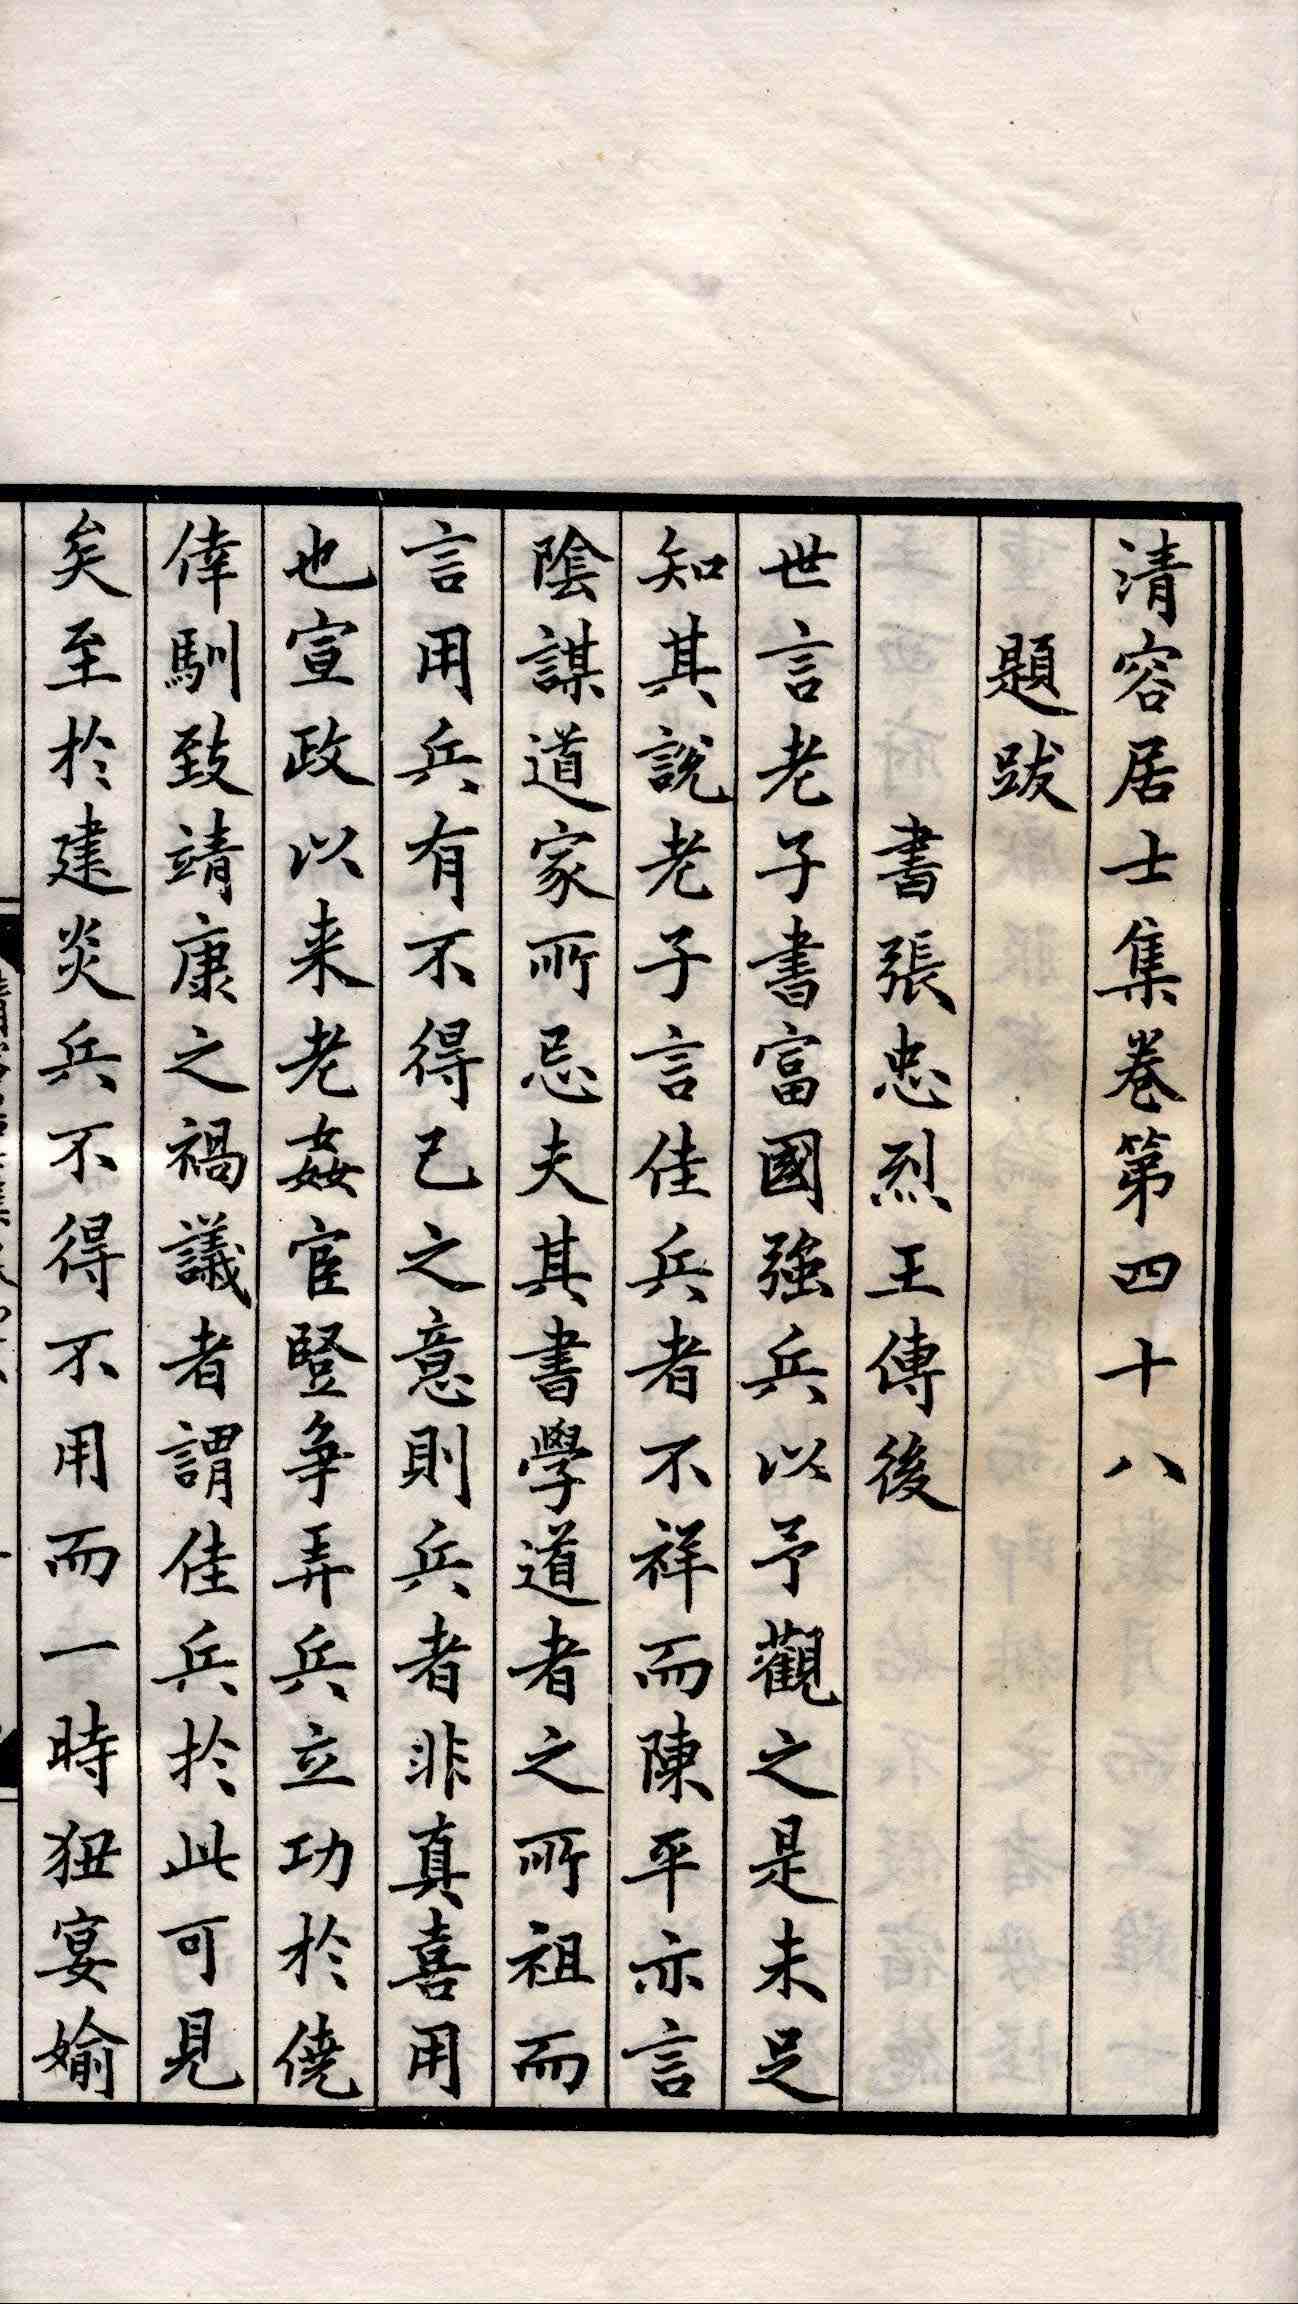 清容居士集卷第四十八
題跋
書張忠烈王傳後
世言老子書富國強兵以予觀之是未足
知其說老子言佳兵者不祥而陳平亦言
陰謀道家所忌夫其書學道者之所祖而
言用兵有不得已之意則兵者非真喜用
也宣政以来老姦宦豎爭弄兵立功於僥
倖馴致靖康之禍議者謂佳兵於此可見
矣至於建炎兵不得不用而一時狃宴媮